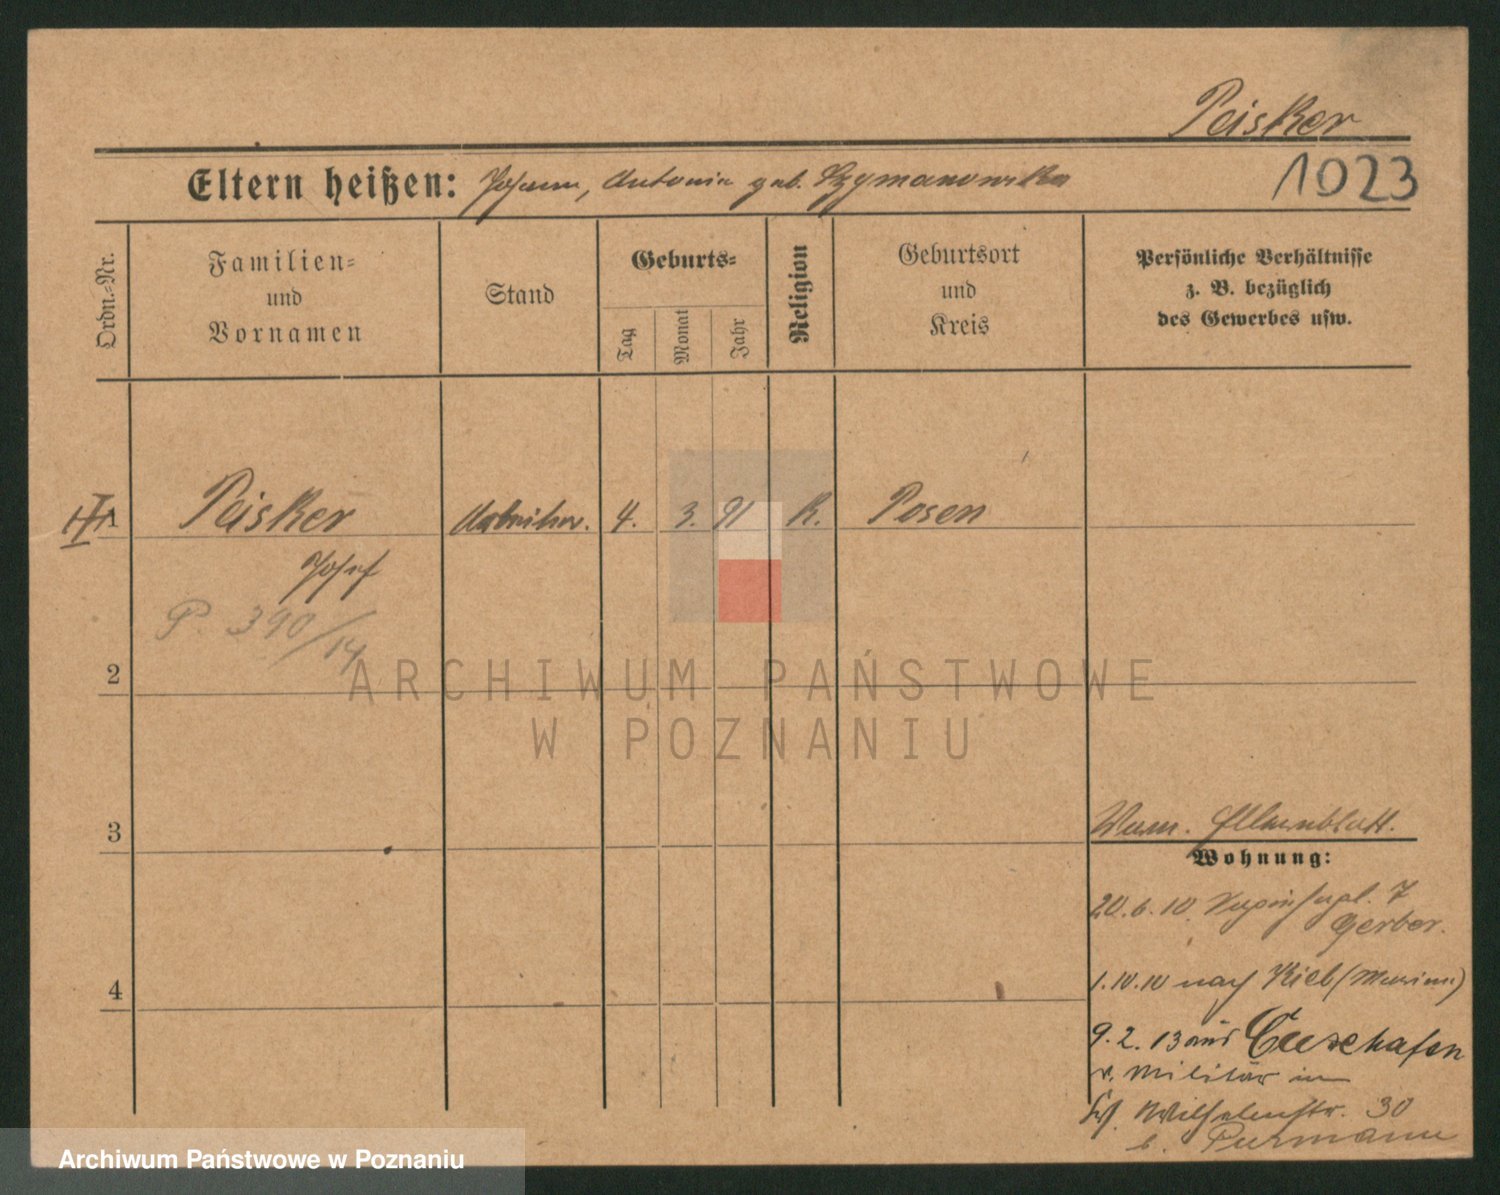 Peisker
1023
Eltern heißen: Johann, Antonie geb. Szymanowska
Ordn.-Nr.
Familien-
und
Vornamen
Stand
Geburts-
Tag
Monat
Jahr
Religion
Geburtsort
und
Kreis
Persönliche Verhältnisse
z. B. bezüglich
des Gewerbes usw.
1 Peisker Arbeiter. 4. 3. 91 K. Posen
Josef
P. 390/14
2
ARCHIWUM PAŃSTWOWE
W POZNANIU
3
Elternblatt.
Wohnung:
20.6.10 7
Gerber.
4
1.10.10 nach Kiel (Marine)
9.2.13 aus Cuxhafen
v. Militär in
Wilhelmstr. 30
b. Purmann
Archiwum Państwowe w Poznaniu